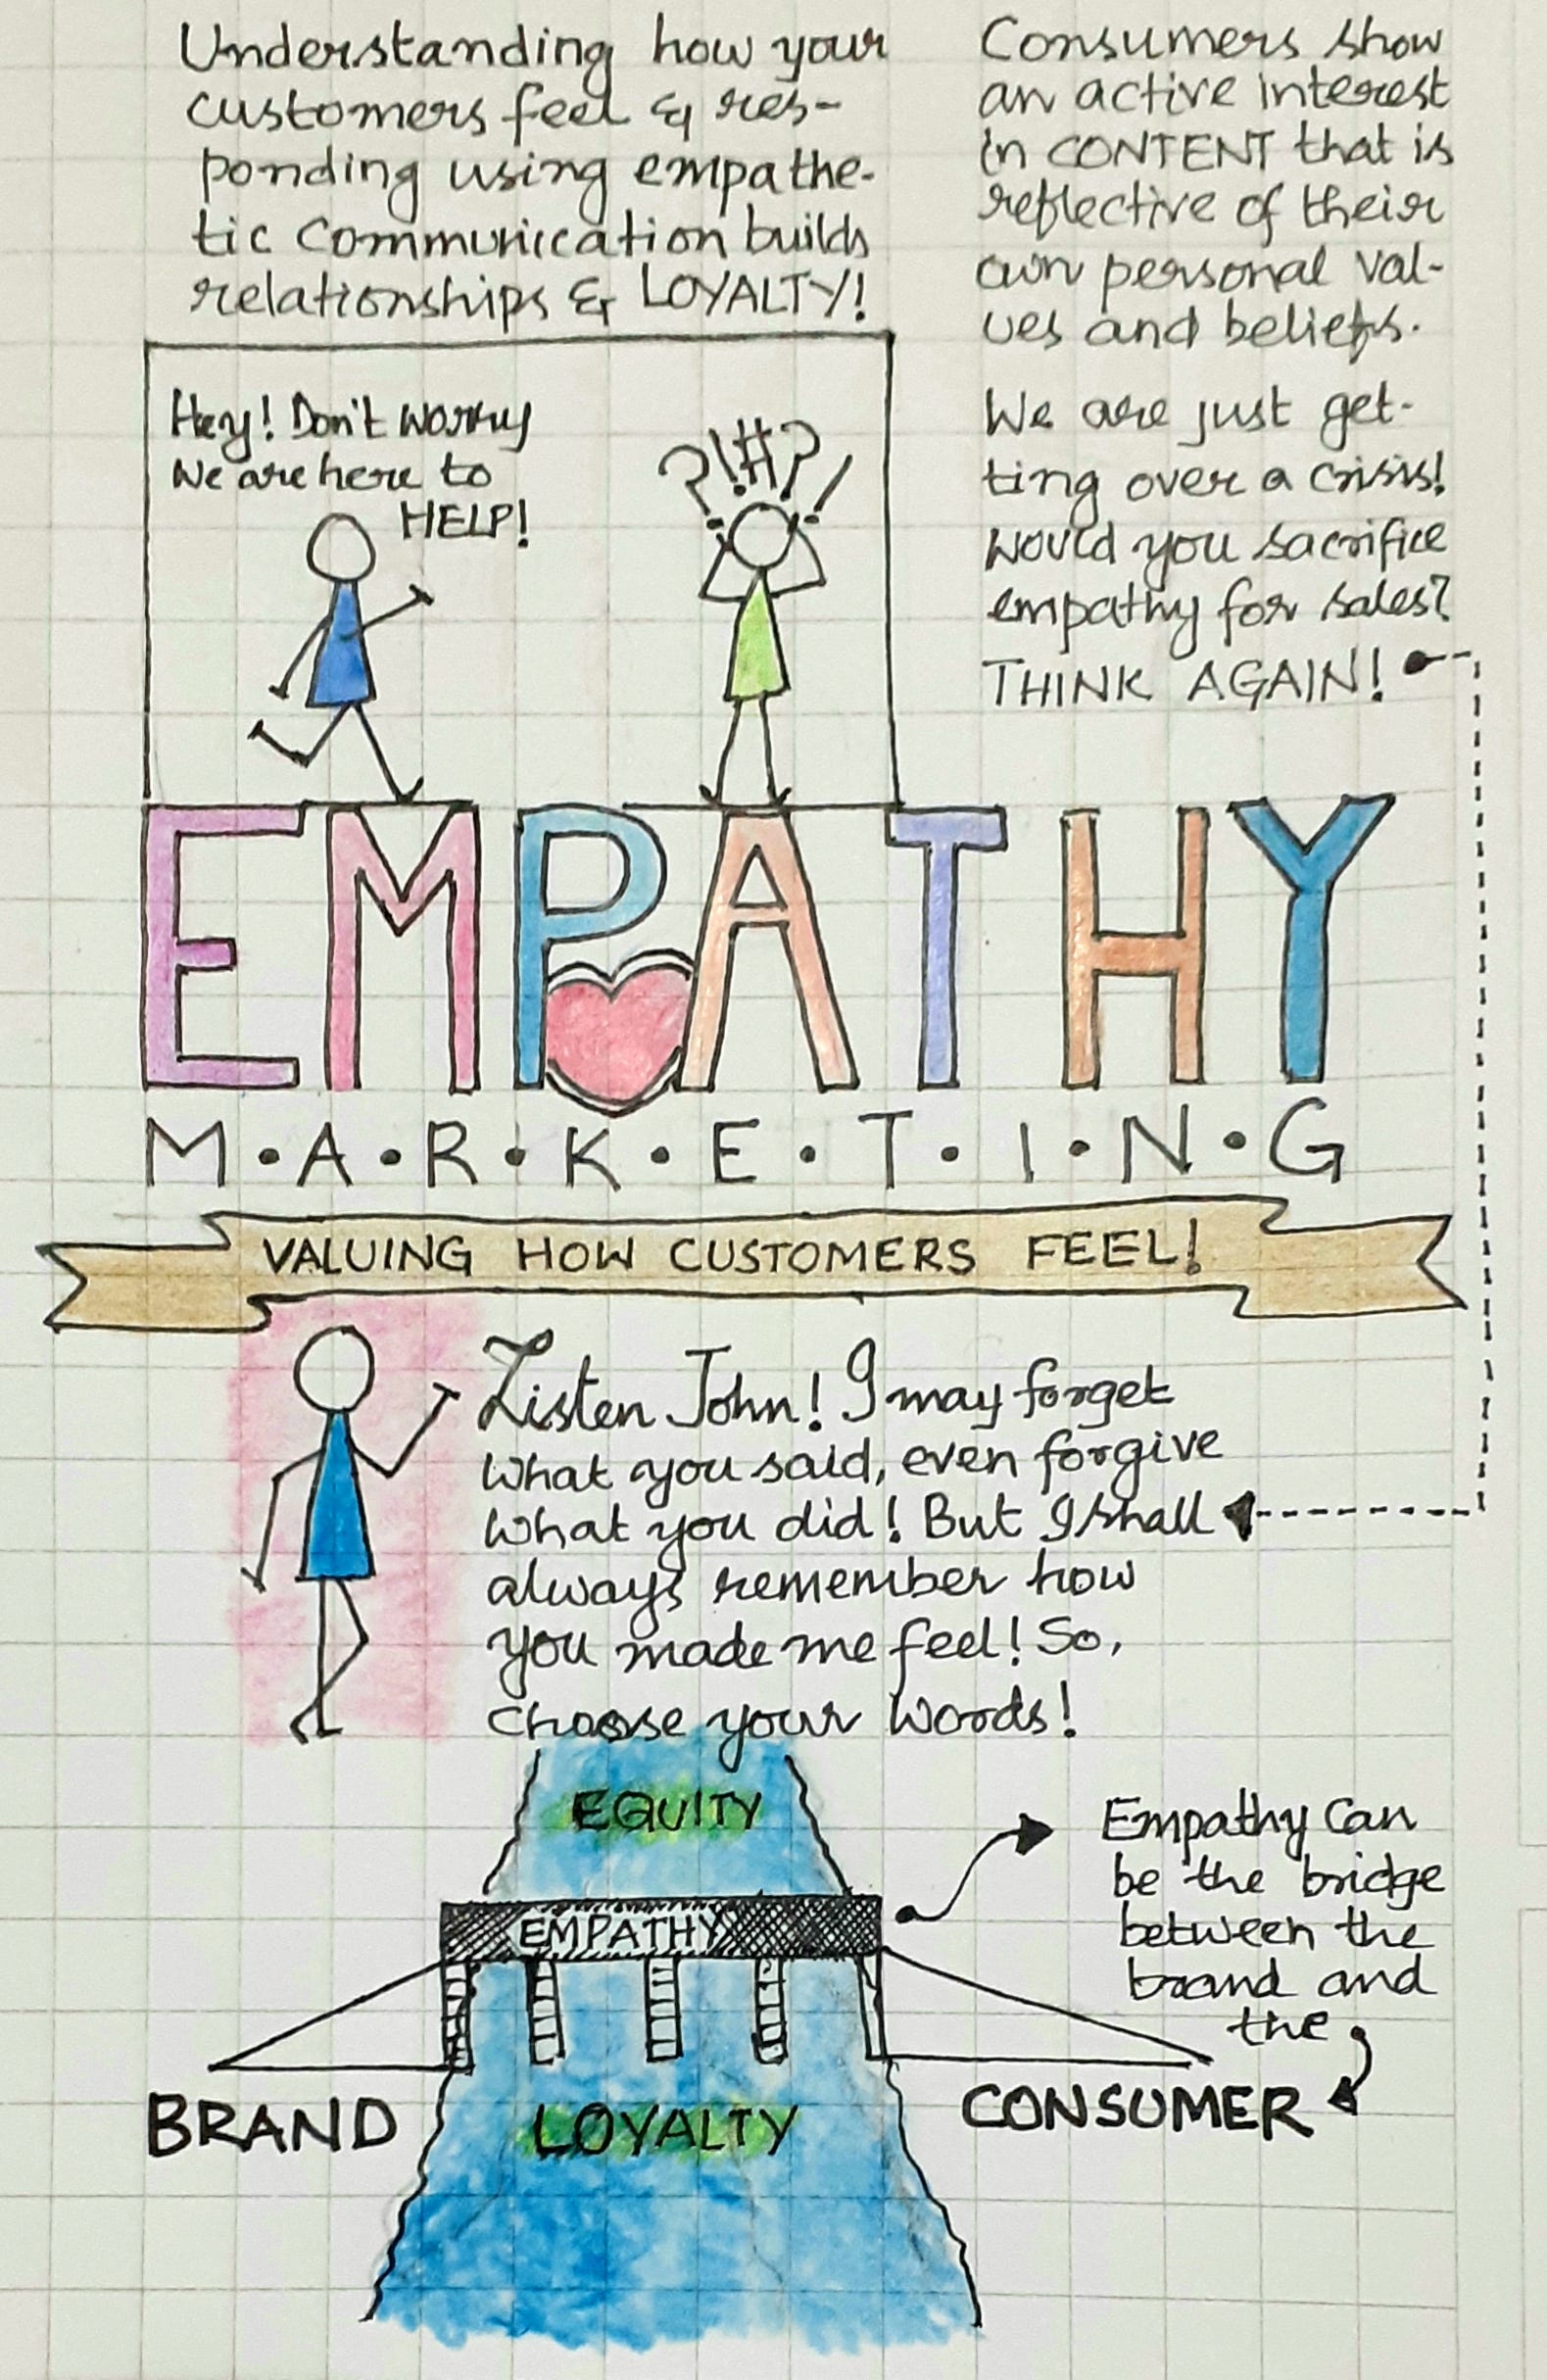 Understanding how your
customers feel & res-
ponding using empathe-
tic communication builds
relationships & LOYALTY!
Consumers show
an active interest
in CONTENT that is
reflective of their
own personal val-
ues and beliefs.
We are just get-
ting over a crisis!
Would you sacrifice
empathy for sales?
THINK AGAIN!
Hey! Don't worry
We are here to
HELP!
?!#?!
EMPATHY
M.A.R.K.E.T.I.N.G
VALUING HOW CUSTOMERS FEEL!
Listen John! I may forget
What you said, even forgive
What you did! But I shall
always remember how
you made me feel! So,
choose your words!
EQUITY
EMPATHY
Empathy Can
be the bridge
between the
brand and
the
BRAND
LOYALTY
CONSUMER